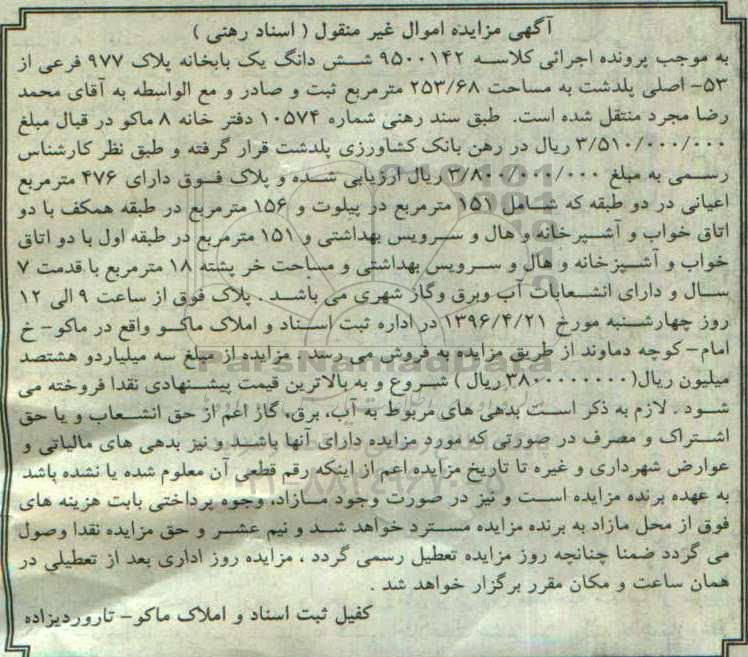 آگهی مزایده اموال غیر منقول ( اسناد رهنی )
به موجب پرونده اجرائی کلاسه ۹۵۰۰۱۴۲ شش دانگ یک بابخانه پلاک ۹۷۷ فرعی از
۵۳- اصلی پلدشت به مساحت ۲۵۳/۶۸ مترمربع ثبت و صادر و مع الواسطه به آقای محمد
رضا مجرد منتقل شده است. طبق سند رهنی شماره ۱۰۵۷۴ دفتر خانه ۸ ماکو در قبال مبلغ
۳/۵۱۰/۰۰۰/۰۰۰ ریال در رهن بانک کشاورزی پلدشت قرار گرفته و طبق نظر کارشناس
رسمی به مبلغ ۳/۸۰۰/۰۰۰/۰۰۰ ریال ارزیابی شده و پلاک فوق دارای ۴۷۶ مترمربع
اعیانی در دو طبقه که شامل ۱۵۱ مترمربع در پیلوت و ۱۵۶ مترمربع در طبقه همکف با دو
اتاق خواب و آشپرخانه و هال و سرویس بهداشتی و ۱۵۱ مترمربع در طبقه اول با دو اتاق
خواب و آشپزخانه و هال و سرویس بهداشتی و مساحت خر پشته ۱۸ مترمربع با قدمت ۷
سال و دارای انشعابات آب وبرق وگار شهری می باشد . پلاک فوق از ساعت ۹ الی ۱۲
روز چهارشنبه مورخ ۱۳۹۶/۴/۲۱ در اداره ثبت اسناد و املاک ماکو واقع در ماکو- خ
امام- کوچه دماوند از طریق مزایده به فروش می رسد . مزایده از مبلغ سه میلیاردو هشتصد
میلیون ریال(۳۸۰۰۰۰۰۰۰۰ ریال ) شروع و به بالاترین قیمت پیشنهادی نقدا فروخته می
شود . لازم به ذکر است بدهی های مربوط به آب، برق، گاز اعم از حق انشعاب و یا حق
اشتراک و مصرف در صورتی که مورد مزایده دارای آنها باشد و نیز بدهی های مالیاتی و
عوارض شهرداری و غیره تا تاریخ مزایده اعم از اینکه رقم قطعی آن معلوم شده یا نشده باشد
به عهده برنده مزایده است و نیز در صورت وجود مازاد، وجوه پرداختی بابت هزینه های
فوق از محل مازاد به برنده مزایده مسترد خواهد شد و نیم عشر و حق مزایده نقدا وصول
می گردد ضمنا چنانچه روز مزایده تعطیل رسمی گردد ، مزایده روز اداری بعد از تعطیلی در
همان ساعت و مکان مقرر برگزار خواهد شد .
کفیل ثبت اسناد و املاک ماکو- تاروردیزاده
ParsNamadData